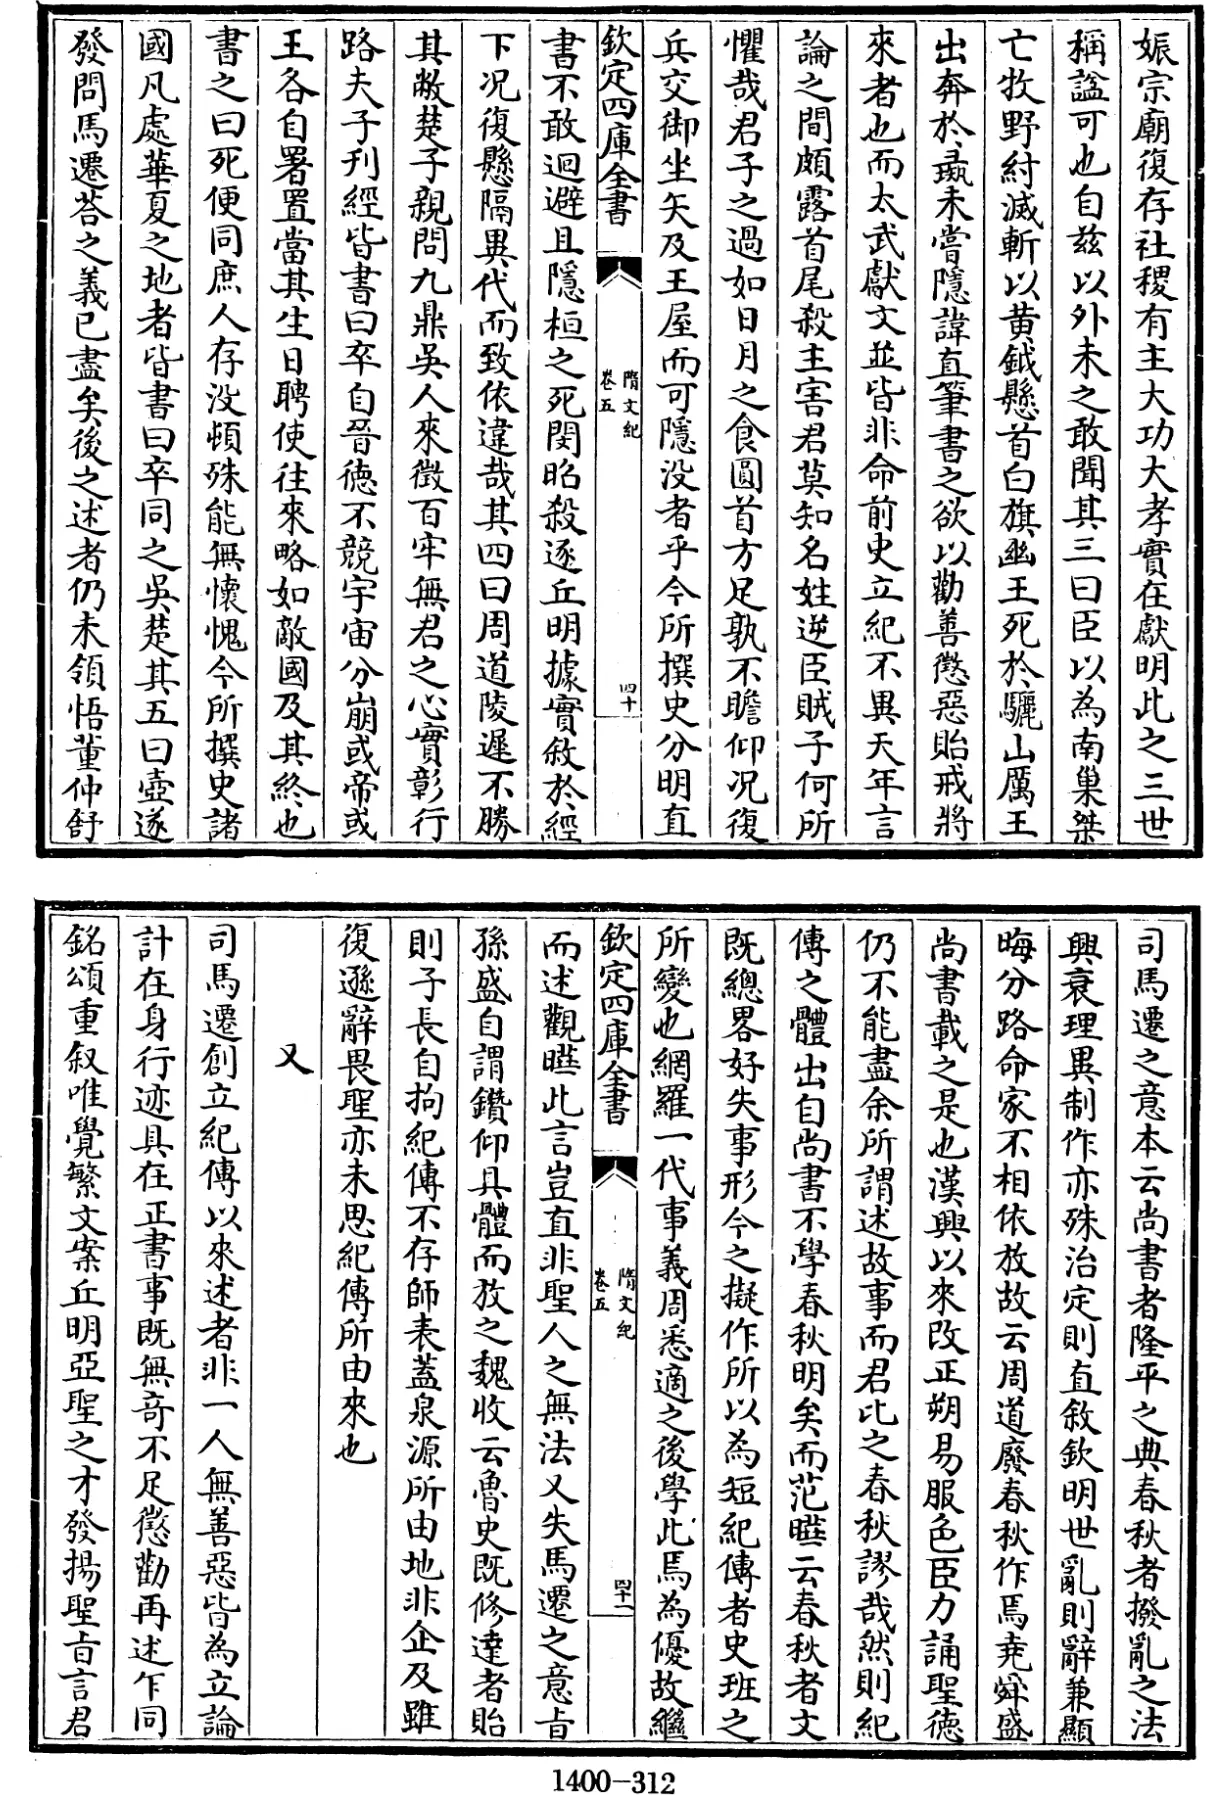 娠宗廟復存社稷有主大功大孝實在獻明此之三世
稱諡可也自兹以外未之敢聞其三曰臣以為南巢桀
亡牧野紂滅斬以黄鉞懸首白旗幽王死於驪山厲王
出奔於彘未嘗隱諱直筆書之欲以勸善懲惡貽戒將
來者也而太武獻文並皆非命前史立紀不異天年言
論之間頗露首尾殺主害君莫知名姓逆臣賊子何所
懼哉君子之過如日月之食圓首方足孰不瞻仰况復
兵交御坐矢及王屋而可隱没者乎今所撰史分明直
欽定四庫全書
隋文紀
卷五
四十
書不敢迴避且隱桓之死閔昭殺逐丘明據實敘於經
下况復懸隔異代而致依違哉其四曰周道陵遲不勝
其敝楚子親問九鼎吳人來徵百牢無君之心實彰行
路夫子刋經皆書曰卒自晉德不競宇宙分崩或帝或
王各自署置當其生日聘使往來略如敵國及其終也
書之曰死便同庶人存没頓殊能無懷愧今所撰史諸
國凡處華夏之地者皆書曰卒同之吳楚其五曰壺遂
發問馬遷荅之義已盡矣後之述者仍未領悟董仲舒
司馬遷之意本云尚書者隆平之典春秋者撥亂之法
興衰理異制作亦殊治定則直敘欽明世亂則辭兼顯
晦分路命家不相依放故云周道廢春秋作焉堯舜盛
尚書載之是也漢興以來改正朔易服色臣力誦聖德
仍不能盡余所謂述故事而君比之春秋謬哉然則紀
傳之體出自尚書不學春秋明矣而范曄云春秋者文
既總畧好失事形今之擬作所以為短紀傳者史班之
所變也網羅一代事義周悉適之後學此焉為優故繼
欽定四庫全書
隋文紀
卷五
四十一
而述觀曄此言豈直非聖人之無法又失馬遷之意㫖
孫盛自謂鑽仰具體而放之魏收云魯史既修達者貽
則子長自拘紀傳不存師表蓋泉源所由地非企及雖
復遜辭畏聖亦未思紀傳所由來也
又
司馬遷創立紀傳以來述者非一人無善惡皆為立論
計在身行迹具在正書事既無奇不足懲勸再述乍同
銘頌重叙唯覺繁文案丘明亞聖之才發揚聖㫖言君
1400-312